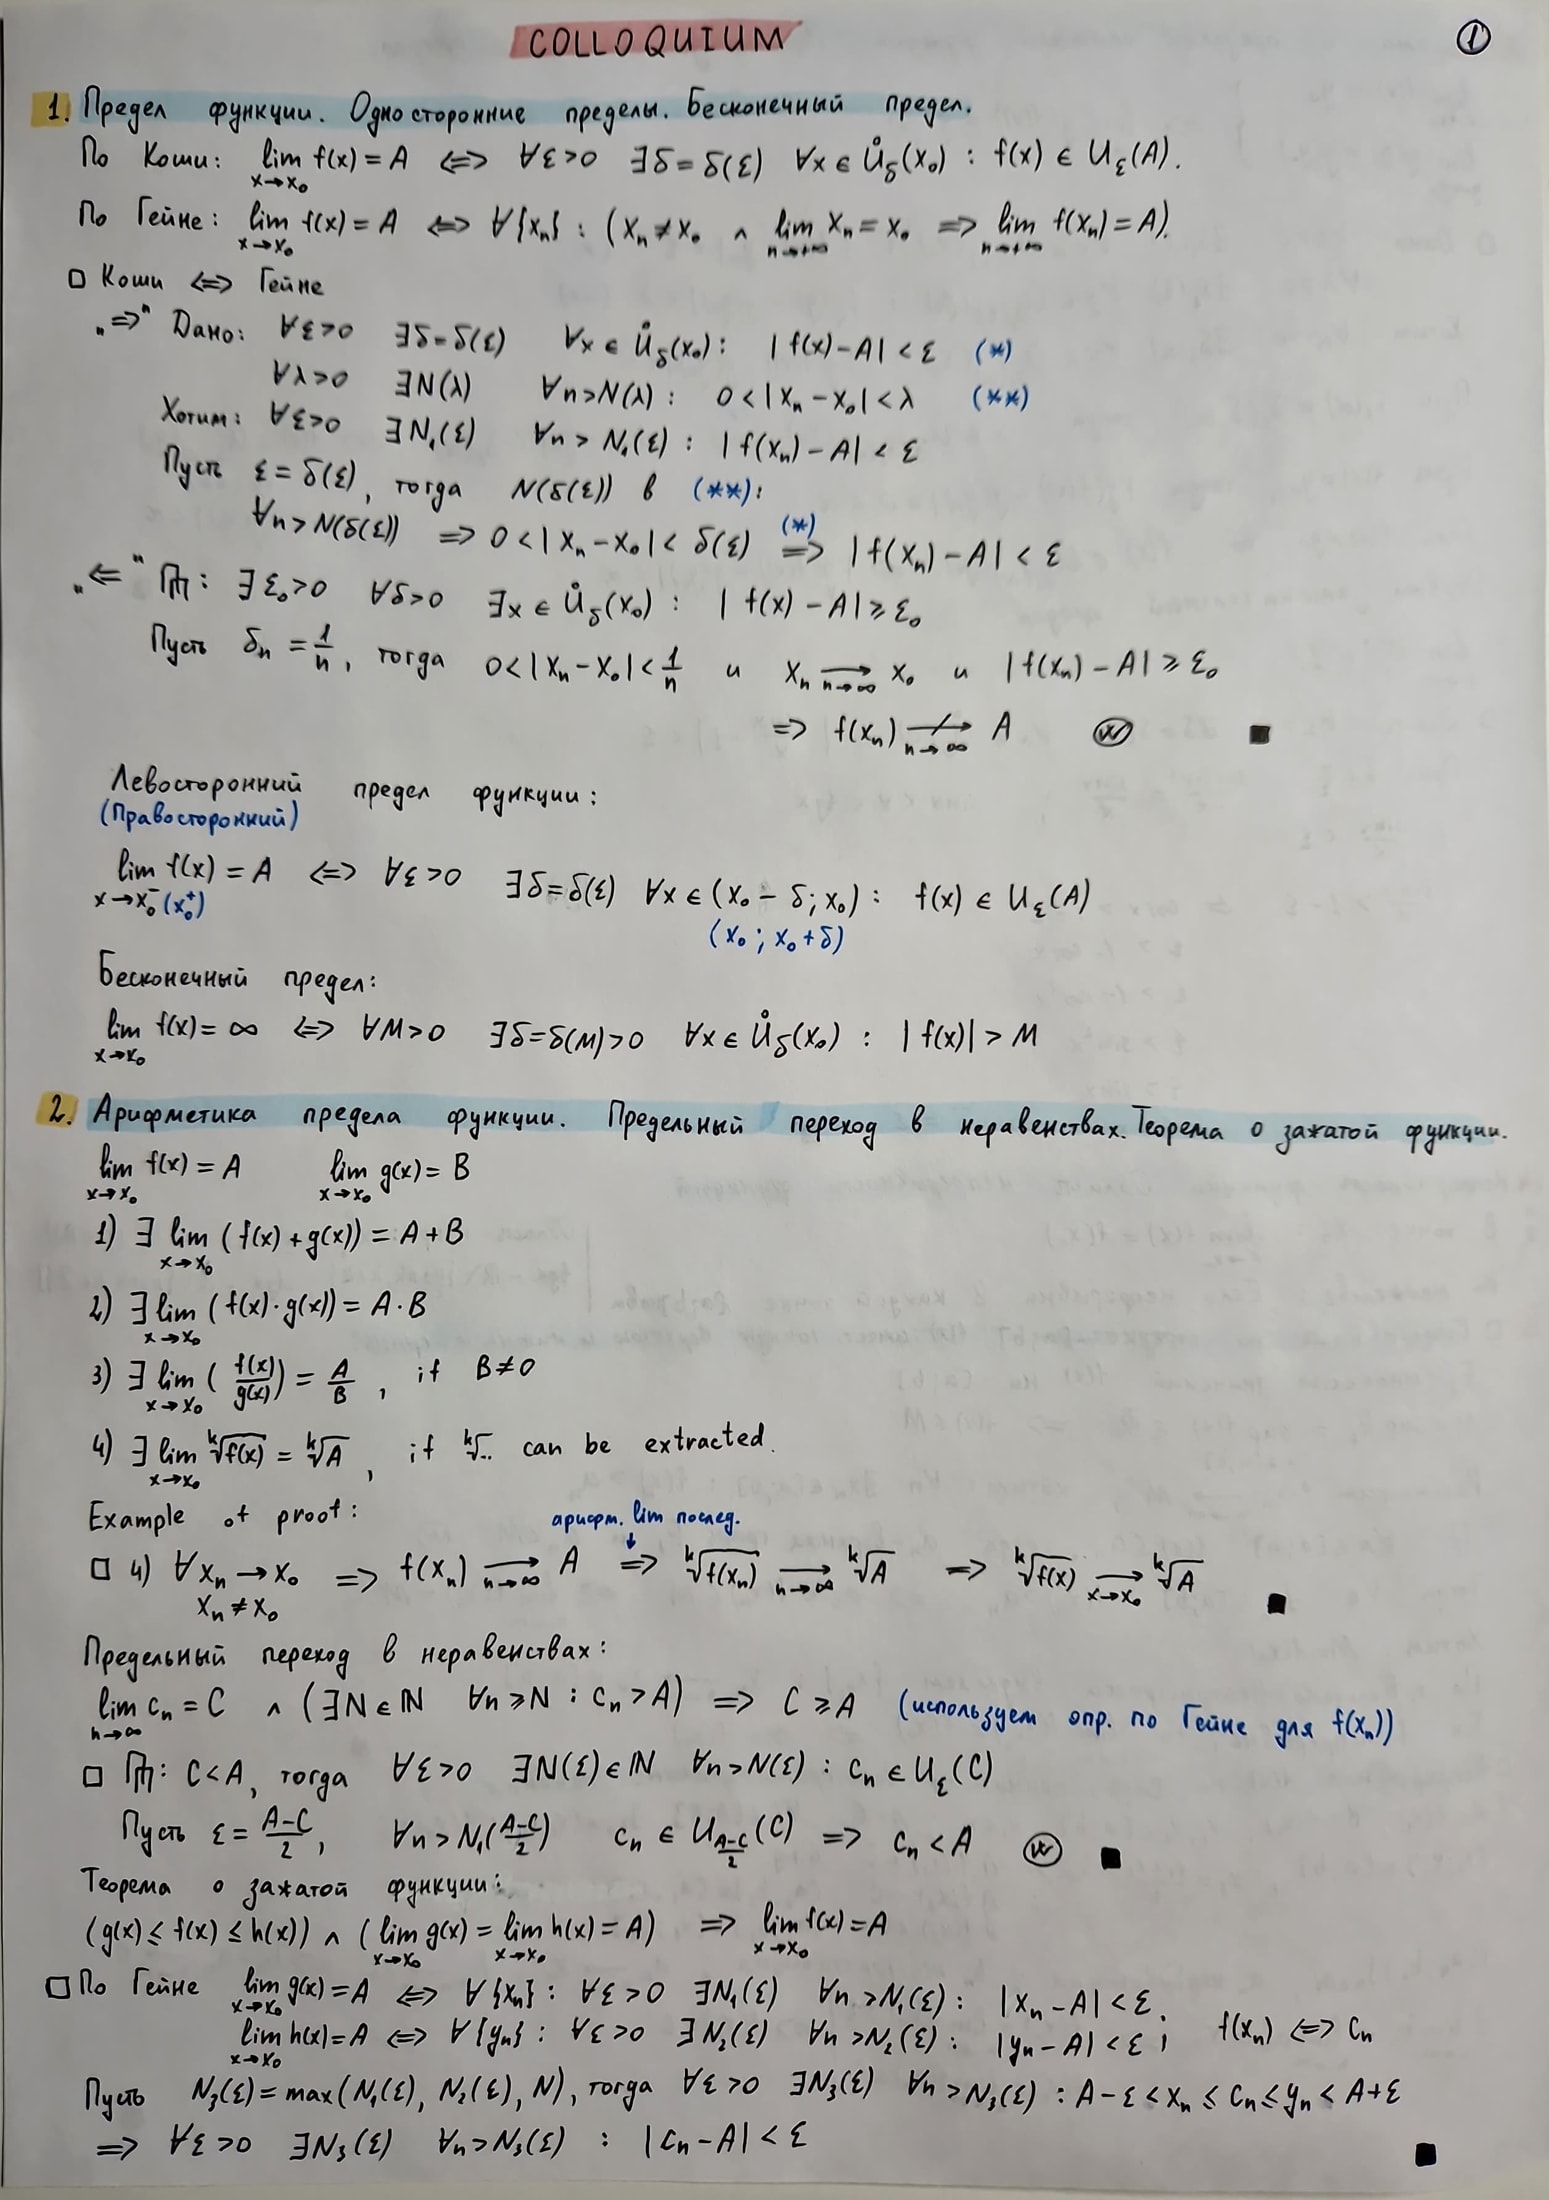 COLLOQUIUM
1
1. Предел функции. Односторонние пределы. Бесконечный предел.
По Коши: lim_{x→x₀} f(x) = A ⟺ ∀ε>0 ∃δ=δ(ε) ∀x ∈ Ů_δ(x₀) : f(x) ∈ U_ε(A).
По Гейне: lim_{x→x₀} f(x) = A ⟺ ∀{xₙ} : (xₙ≠x₀ ∧ lim_{n→+∞} xₙ = x₀ ⟹ lim_{n→+∞} f(xₙ) = A).
□ Коши ⟺ Гейне
„⟹" Дано: ∀ε>0 ∃δ=δ(ε) ∀x ∈ Ů_δ(x₀) : |f(x)-A| < ε (*)
∀λ>0 ∃N(λ) ∀n>N(λ) : 0<|xₙ-x₀|<λ (**)
Хотим: ∀ε>0 ∃N₁(ε) ∀n > N₁(ε) : |f(xₙ)-A| < ε
Пусть ε = δ(ε), тогда N(δ(ε)) в (**):
∀n > N(δ(ε)) ⟹ 0<|xₙ-x₀|< δ(ε) (*) ⟹ |f(xₙ)-A| < ε
„⟸" ПП: ∃ε₀>0 ∀δ>0 ∃x ∈ Ů_δ(x₀) : |f(x)-A| ≥ ε₀
Пусть δₙ = 1/n, тогда 0<|xₙ-x₀|<1/n и xₙ →_{n→∞} x₀ и |f(xₙ)-A| ≥ ε₀
⟹ f(xₙ) ↛_{n→∞} A Ⓦ ■
Левосторонний предел функции:
(Правосторонний)
lim_{x→x₀⁻ (x₀⁺)} f(x) = A ⟺ ∀ε>0 ∃δ=δ(ε) ∀x ∈ (x₀-δ; x₀) : f(x) ∈ U_ε(A)
(x₀; x₀+δ)
Бесконечный предел:
lim_{x→x₀} f(x) = ∞ ⟺ ∀M>0 ∃δ=δ(M)>0 ∀x ∈ Ů_δ(x₀) : |f(x)| > M
2. Арифметика предела функции. Предельный переход в неравенствах. Теорема о зажатой функции.
lim_{x→x₀} f(x) = A lim_{x→x₀} g(x) = B
1) ∃ lim_{x→x₀} (f(x)+g(x)) = A+B
2) ∃ lim_{x→x₀} (f(x)·g(x)) = A·B
3) ∃ lim_{x→x₀} (f(x)/g(x)) = A/B, if B≠0
4) ∃ lim_{x→x₀} ᵏ√f(x) = ᵏ√A, if ᵏ√.. can be extracted.
Example of proof:
арифм. lim послед. ↓
□ 4) ∀xₙ→x₀ ⟹ f(xₙ) →_{n→∞} A ⟹ ᵏ√f(xₙ) →_{n→∞} ᵏ√A ⟹ ᵏ√f(x) →_{x→x₀} ᵏ√A ■
xₙ≠x₀
Предельный переход в неравенствах:
lim_{n→∞} cₙ = C ∧ (∃N∈ℕ ∀n≥N : cₙ>A) ⟹ C ≥ A (используем опр. по Гейне для f(xₙ))
□ ПП: C<A, тогда ∀ε>0 ∃N(ε)∈ℕ ∀n>N(ε) : cₙ ∈ U_ε(C)
Пусть ε = (A-C)/2, ∀n > N₁((A-C)/2) cₙ ∈ U_{(A-C)/2}(C) ⟹ cₙ < A Ⓦ ■
Теорема о зажатой функции:
(g(x) ≤ f(x) ≤ h(x)) ∧ (lim_{x→x₀} g(x) = lim_{x→x₀} h(x) = A) ⟹ lim_{x→x₀} f(x) = A
□ По Гейне lim_{x→x₀} g(x) = A ⟺ ∀{xₙ} : ∀ε>0 ∃N₁(ε) ∀n>N₁(ε) : |xₙ-A|<ε.
lim_{x→x₀} h(x) = A ⟺ ∀{yₙ} : ∀ε>0 ∃N₂(ε) ∀n>N₂(ε) : |yₙ-A|<ε; f(xₙ) ⟺ cₙ
Пусть N₃(ε) = max(N₁(ε), N₂(ε), N), тогда ∀ε>0 ∃N₃(ε) ∀n>N₃(ε) : A-ε < xₙ ≤ cₙ ≤ yₙ < A+ε
⟹ ∀ε>0 ∃N₃(ε) ∀n>N₃(ε) : |cₙ-A| < ε ■